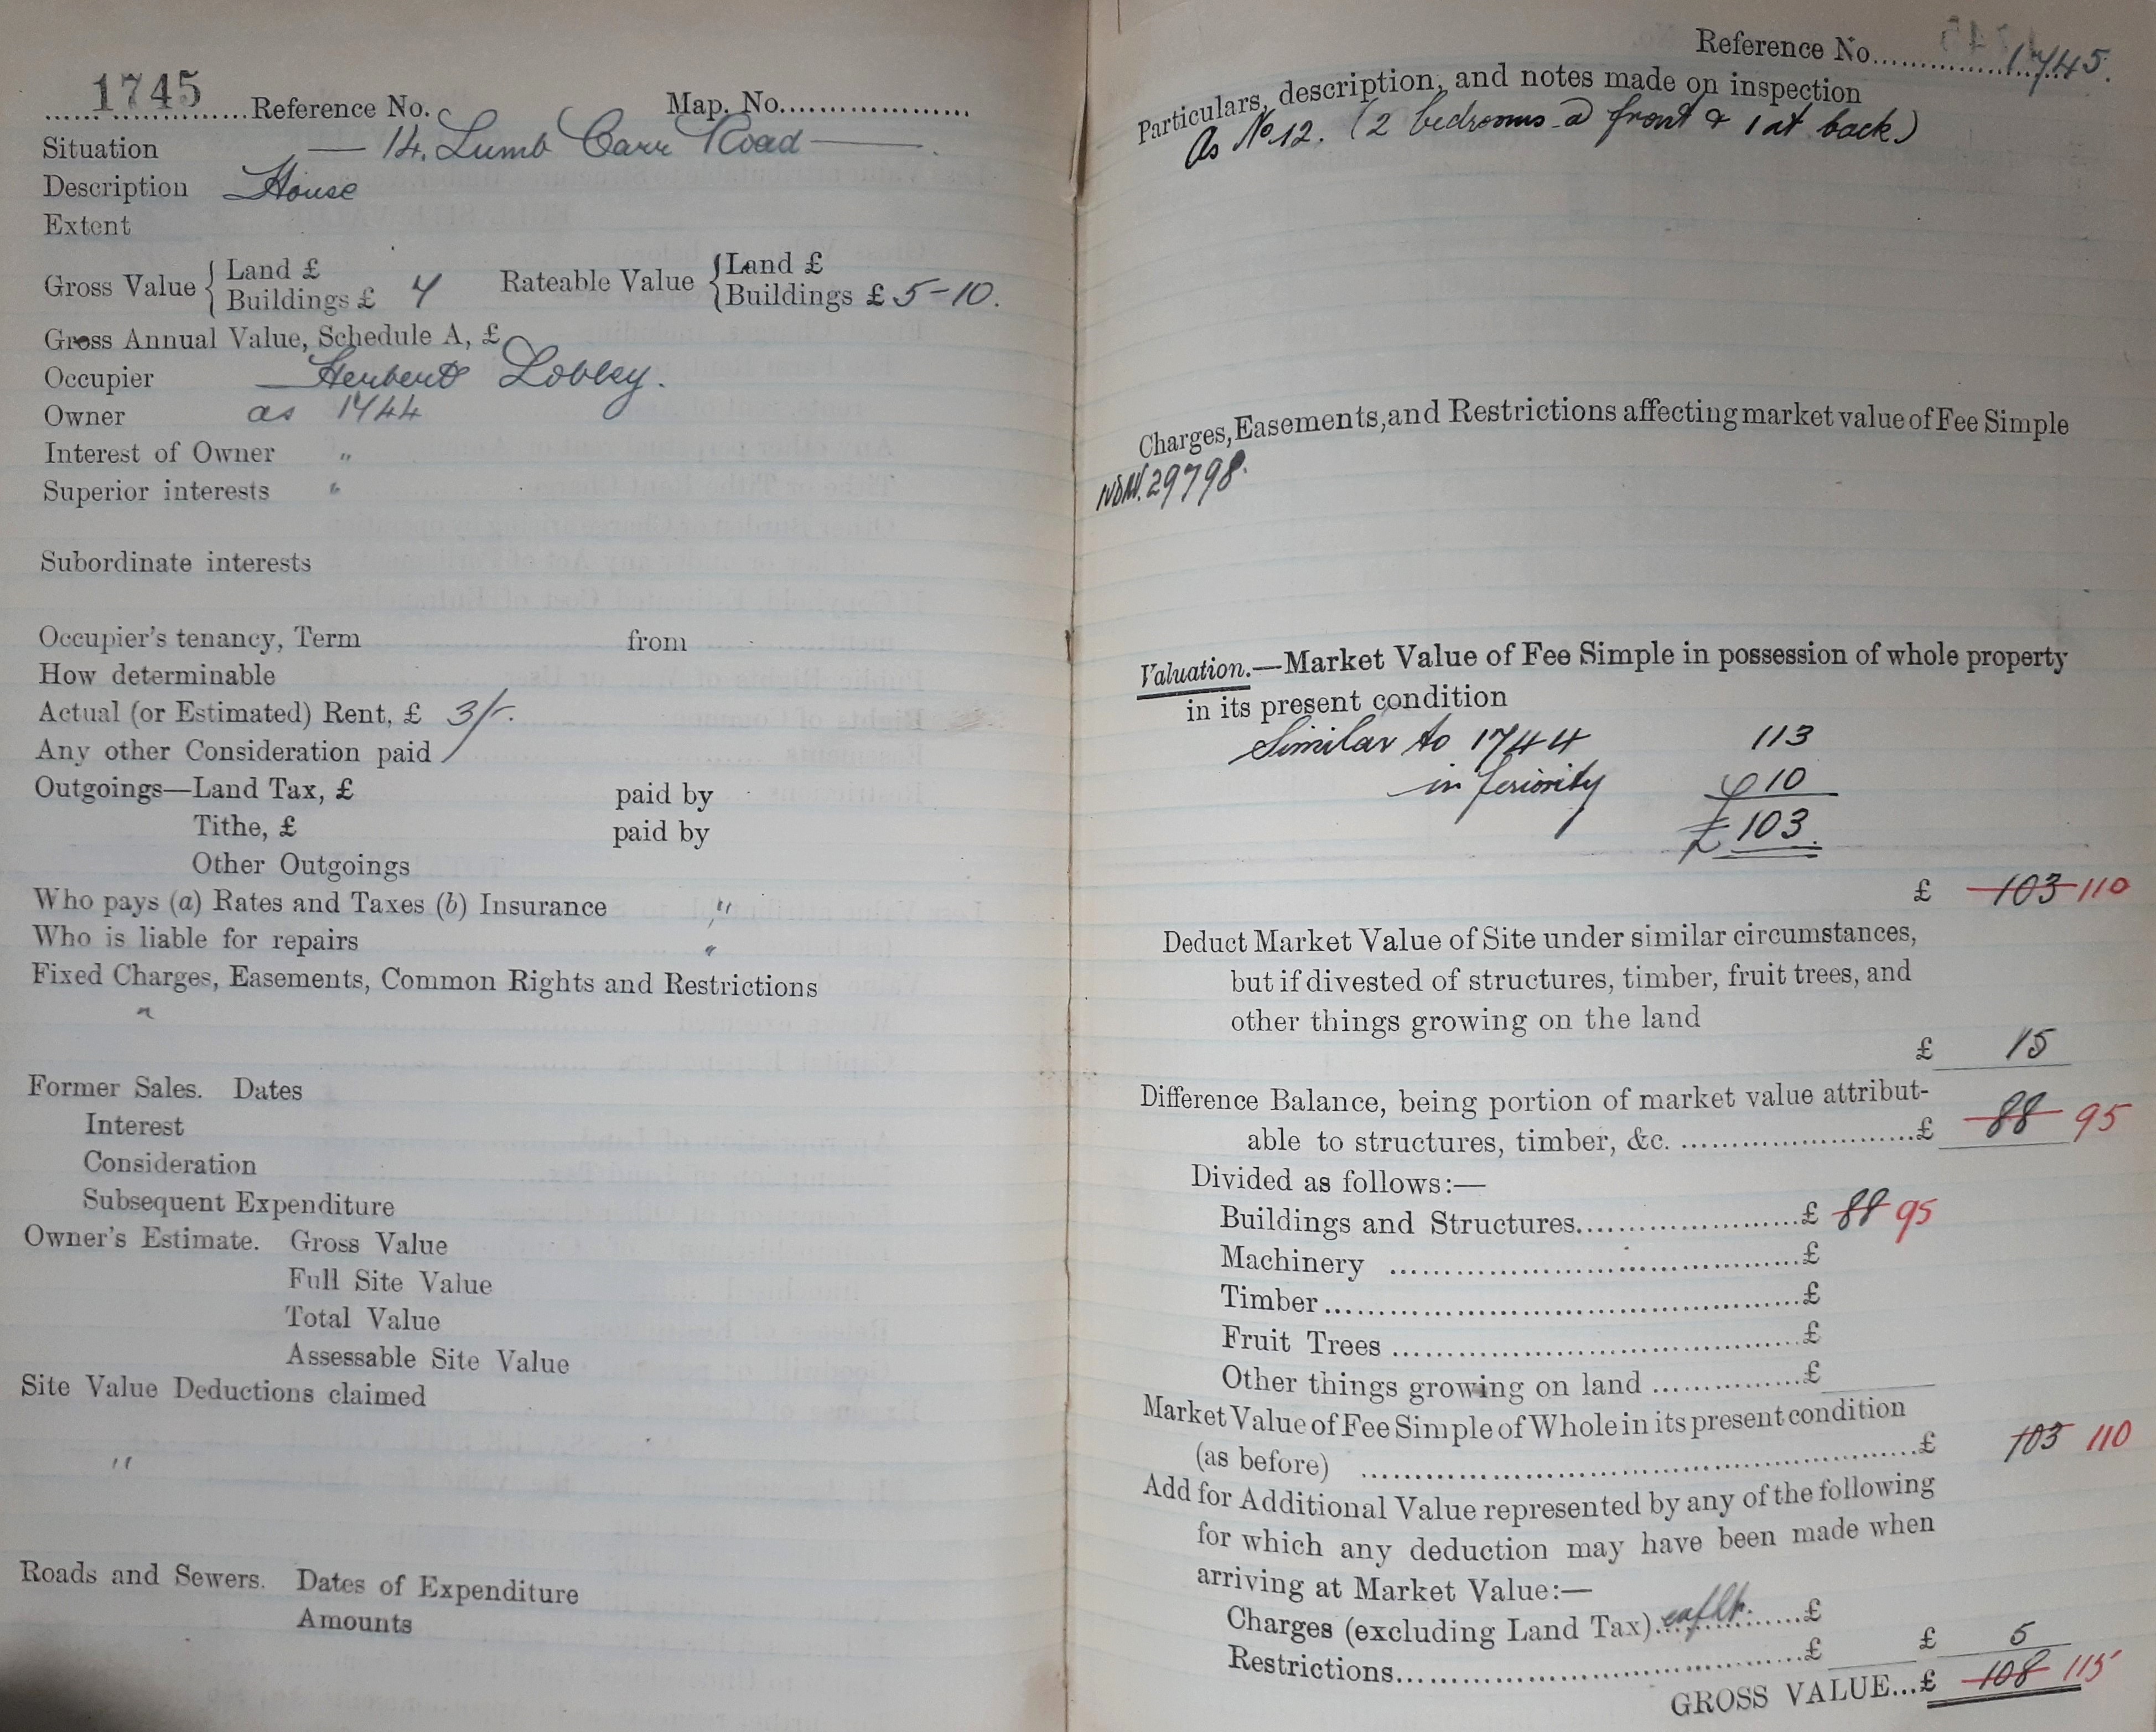 1745 Reference No. Map. No.
Situation — 14. Lumb Carr Road —
Description House
Extent
Gross Value { Land £
Buildings £ 7
Rateable Value { Land £
Buildings £ 5-10.
Gross Annual Value, Schedule A, £
Occupier Herbert Lobley.
Owner as 1744
Interest of Owner "
Superior interests "
Subordinate interests
Occupier's tenancy, Term from
How determinable
Actual (or Estimated) Rent, £ 3/-.
Any other Consideration paid
Outgoings—Land Tax, £ paid by
Tithe, £ paid by
Other Outgoings
Who pays (a) Rates and Taxes (b) Insurance "
Who is liable for repairs "
Fixed Charges, Easements, Common Rights and Restrictions
"
Former Sales. Dates
Interest
Consideration
Subsequent Expenditure
Owner's Estimate. Gross Value
Full Site Value
Total Value
Assessable Site Value
Site Value Deductions claimed
"
Roads and Sewers. Dates of Expenditure
Amounts
Reference No. 1745.
Particulars, description, and notes made on inspection
As No 12. (2 bedrooms @ front & 1 at back)
Charges, Easements, and Restrictions affecting market value of Fee Simple
29798.
Valuation.—Market Value of Fee Simple in possession of whole property
in its present condition
Similar to 1744 113
inferiority 10
£103.
£ 103 110
Deduct Market Value of Site under similar circumstances,
but if divested of structures, timber, fruit trees, and
other things growing on the land
£ 15
Difference Balance, being portion of market value attribut-
able to structures, timber, &c. £ 88 95
Divided as follows:—
Buildings and Structures £ 88 95
Machinery £
Timber £
Fruit Trees £
Other things growing on land £
Market Value of Fee Simple of Whole in its present condition
(as before) £ 103 110
Add for Additional Value represented by any of the following
for which any deduction may have been made when
arriving at Market Value:—
Charges (excluding Land Tax) £
Restrictions £ £ 5
GROSS VALUE...£ 108 115